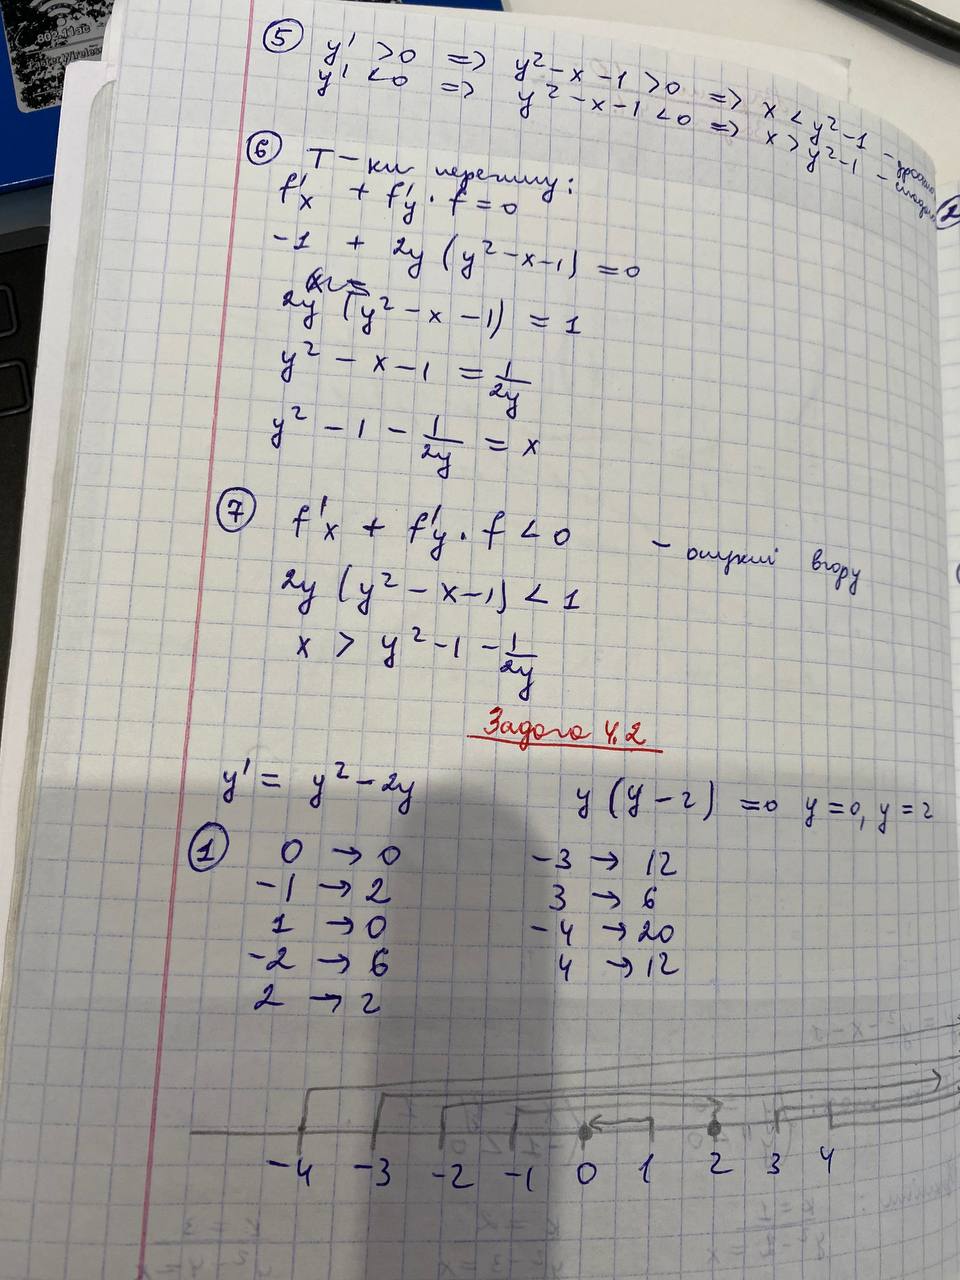 802.11ac
⑤ y' > 0 => y² - x - 1 > 0 => x < y² - 1 -
y' < 0 => y² - x - 1 < 0 => x > y² - 1 -
⑥ Т-ки перегину:
f'x + f'y · f = 0
-1 + 2y (y² - x - 1) = 0
2y (y² - x - 1) = 1
y² - x - 1 = 1/2y
y² - 1 - 1/2y = x
⑦ f'x + f'y · f < 0 - опуклі вгору
2y (y² - x - 1) < 1
x > y² - 1 - 1/2y
Задача 4.2
y' = y² - 2y y (y - 2) = 0 y = 0, y = 2
① 0 → 0 -3 → 12
-1 → 2 3 → 6
1 → 0 -4 → 20
-2 → 6 4 → 12
2 → 2
-4 -3 -2 -1 0 1 2 3 4